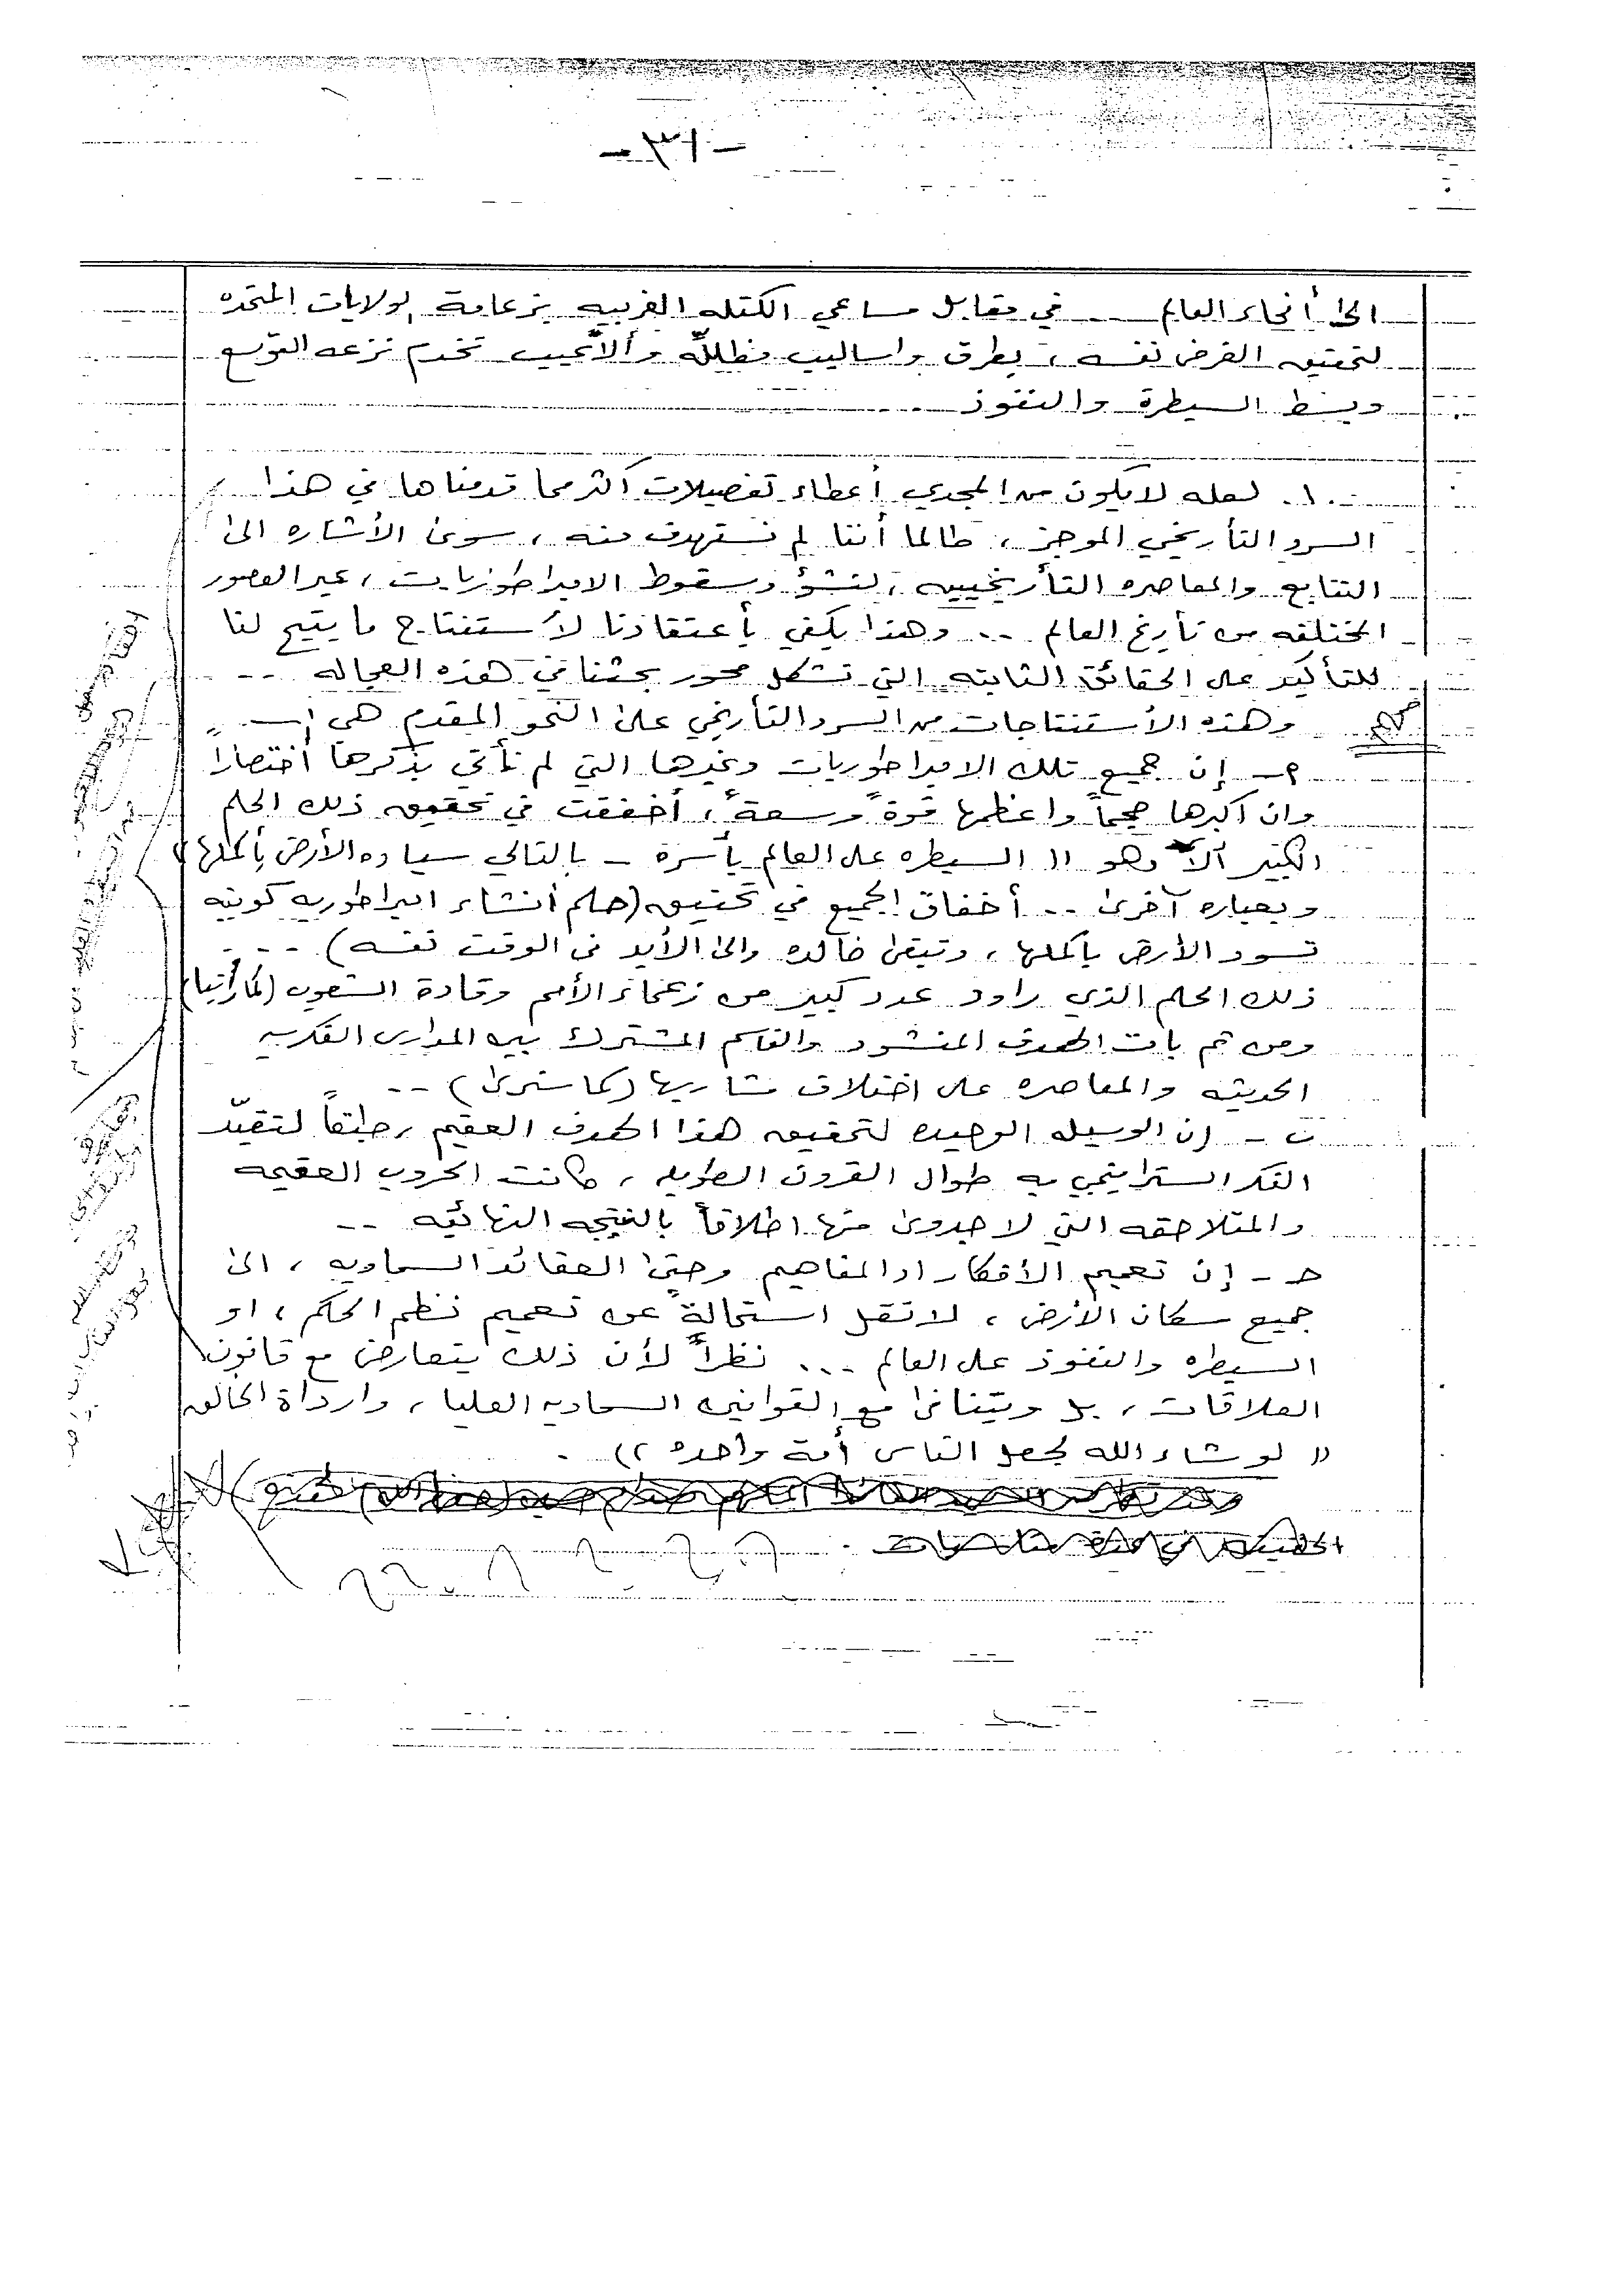 -٣١-
الى أنحاء العالم ... في مقابل مساعي الكتله الغربيه بزعامة الولايات المتحده
لتحقيق الغرض نفسه ، بطرق واساليب مظللّه وألاّعيب تخدم نزعه التوسع
وبسط السيطرة والنفوذ ...
١٠. لعله لا يكون من المجدي أعطاء تفصيلات أكثر مما قدمناها في هذا
السرد التأريخي الموجز ، طالما أننا لم نستهدف منه ، سوى الأشاره الى
التتابع والمعاصره التأريخييه ، لنشؤ وسقوط الامبراطوريات ، عبر العصور
المختلفه من تأريخ العالم ... وهذا يكفي بأعتقادنا لأستنتاج ما يتيح لنا
للتأكيد على الحقائق الثابته التي تشكل محور بحثنا في هذه العجاله ...
وهذه الأستنتاجات من السرد التأريخي على النحو المقدم هي :ـ
٢ـ إن جميع تلك الامبراطوريات وغيرها التي لم نأتي بذكرها أختصاراً
وان اكبرها حجماً واعظمها قوةً وسعةً ، أخفقت في تحقيق ذلك الحلم
الكبير ألآ وهو (( السيطره على العالم بأسرة - بالتالي سياده الأرض بأكملها ))
وبعباره آخرى .. أخفاق الجميع في تحقيق (حلم أنشاء امبراطوريه كونيه
تسود الأرض بأكملها ، وتبقى خالده والى الأبد في الوقت نفسه) ...
ذلك الحلم الذي راود عدد كبير من زعماء الأمم وقادة الشعوب (كما رأينا)
ومن ثم بات الهدف المنشود والقاسم المشترك بين المدارس الفكريه
الحديثه والمعاصره على اختلاف مشاربها (كما سنرى) ..
ب - إن الوسيله الوحيده لتحقيق هذا الهدف العقيم ، طبقاً لتقيّد
الفكر الستراتيجي به طوال القرون الطويله ، كانت الحروب العقيمه
والمتلاحقه التي لا جدوى منها اطلاقاً بالنتيجه النهائيه ..
حـ - إن تعميم الأفكار او المفاهيم وحتى العقائد السماويه ، الى
جميع سكان الأرض ، لا تقل استحالةً عن تعميم نظم الحكم ، او
السيطره والنفوذ على العالم ... نظراً لأن ذلك يتعارض مع قانون
العلاقات ، بل ويتنافى مع القوانين السماويه العليا ، وارداة الخالق
(( لو شاء الله لجعل الناس أمة واحده )) .